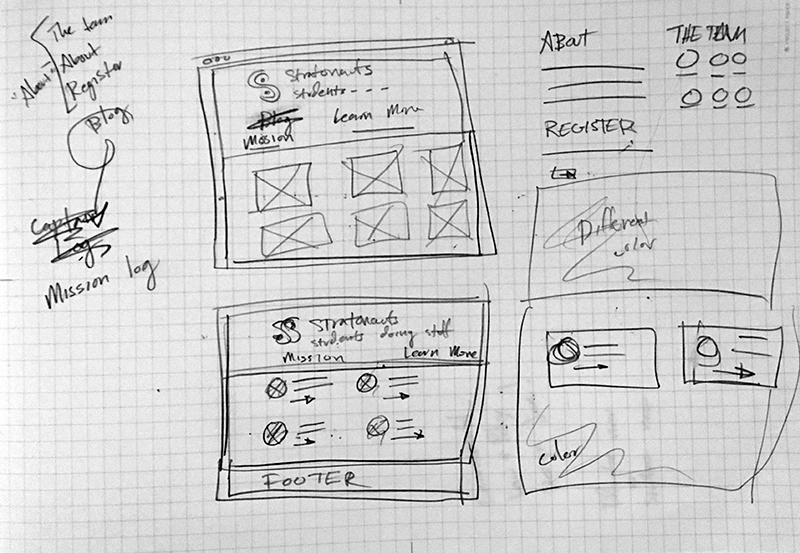 The team
About
"About"
Register
Blog
Captain
Logs
Mission log
Stratonauts
students - - -
Blog
Learn More
Mission
Stratonauts
students doing stuff
Mission
Learn More
FOOTER
ABout
THE TEAM
REGISTER
Different
color
color